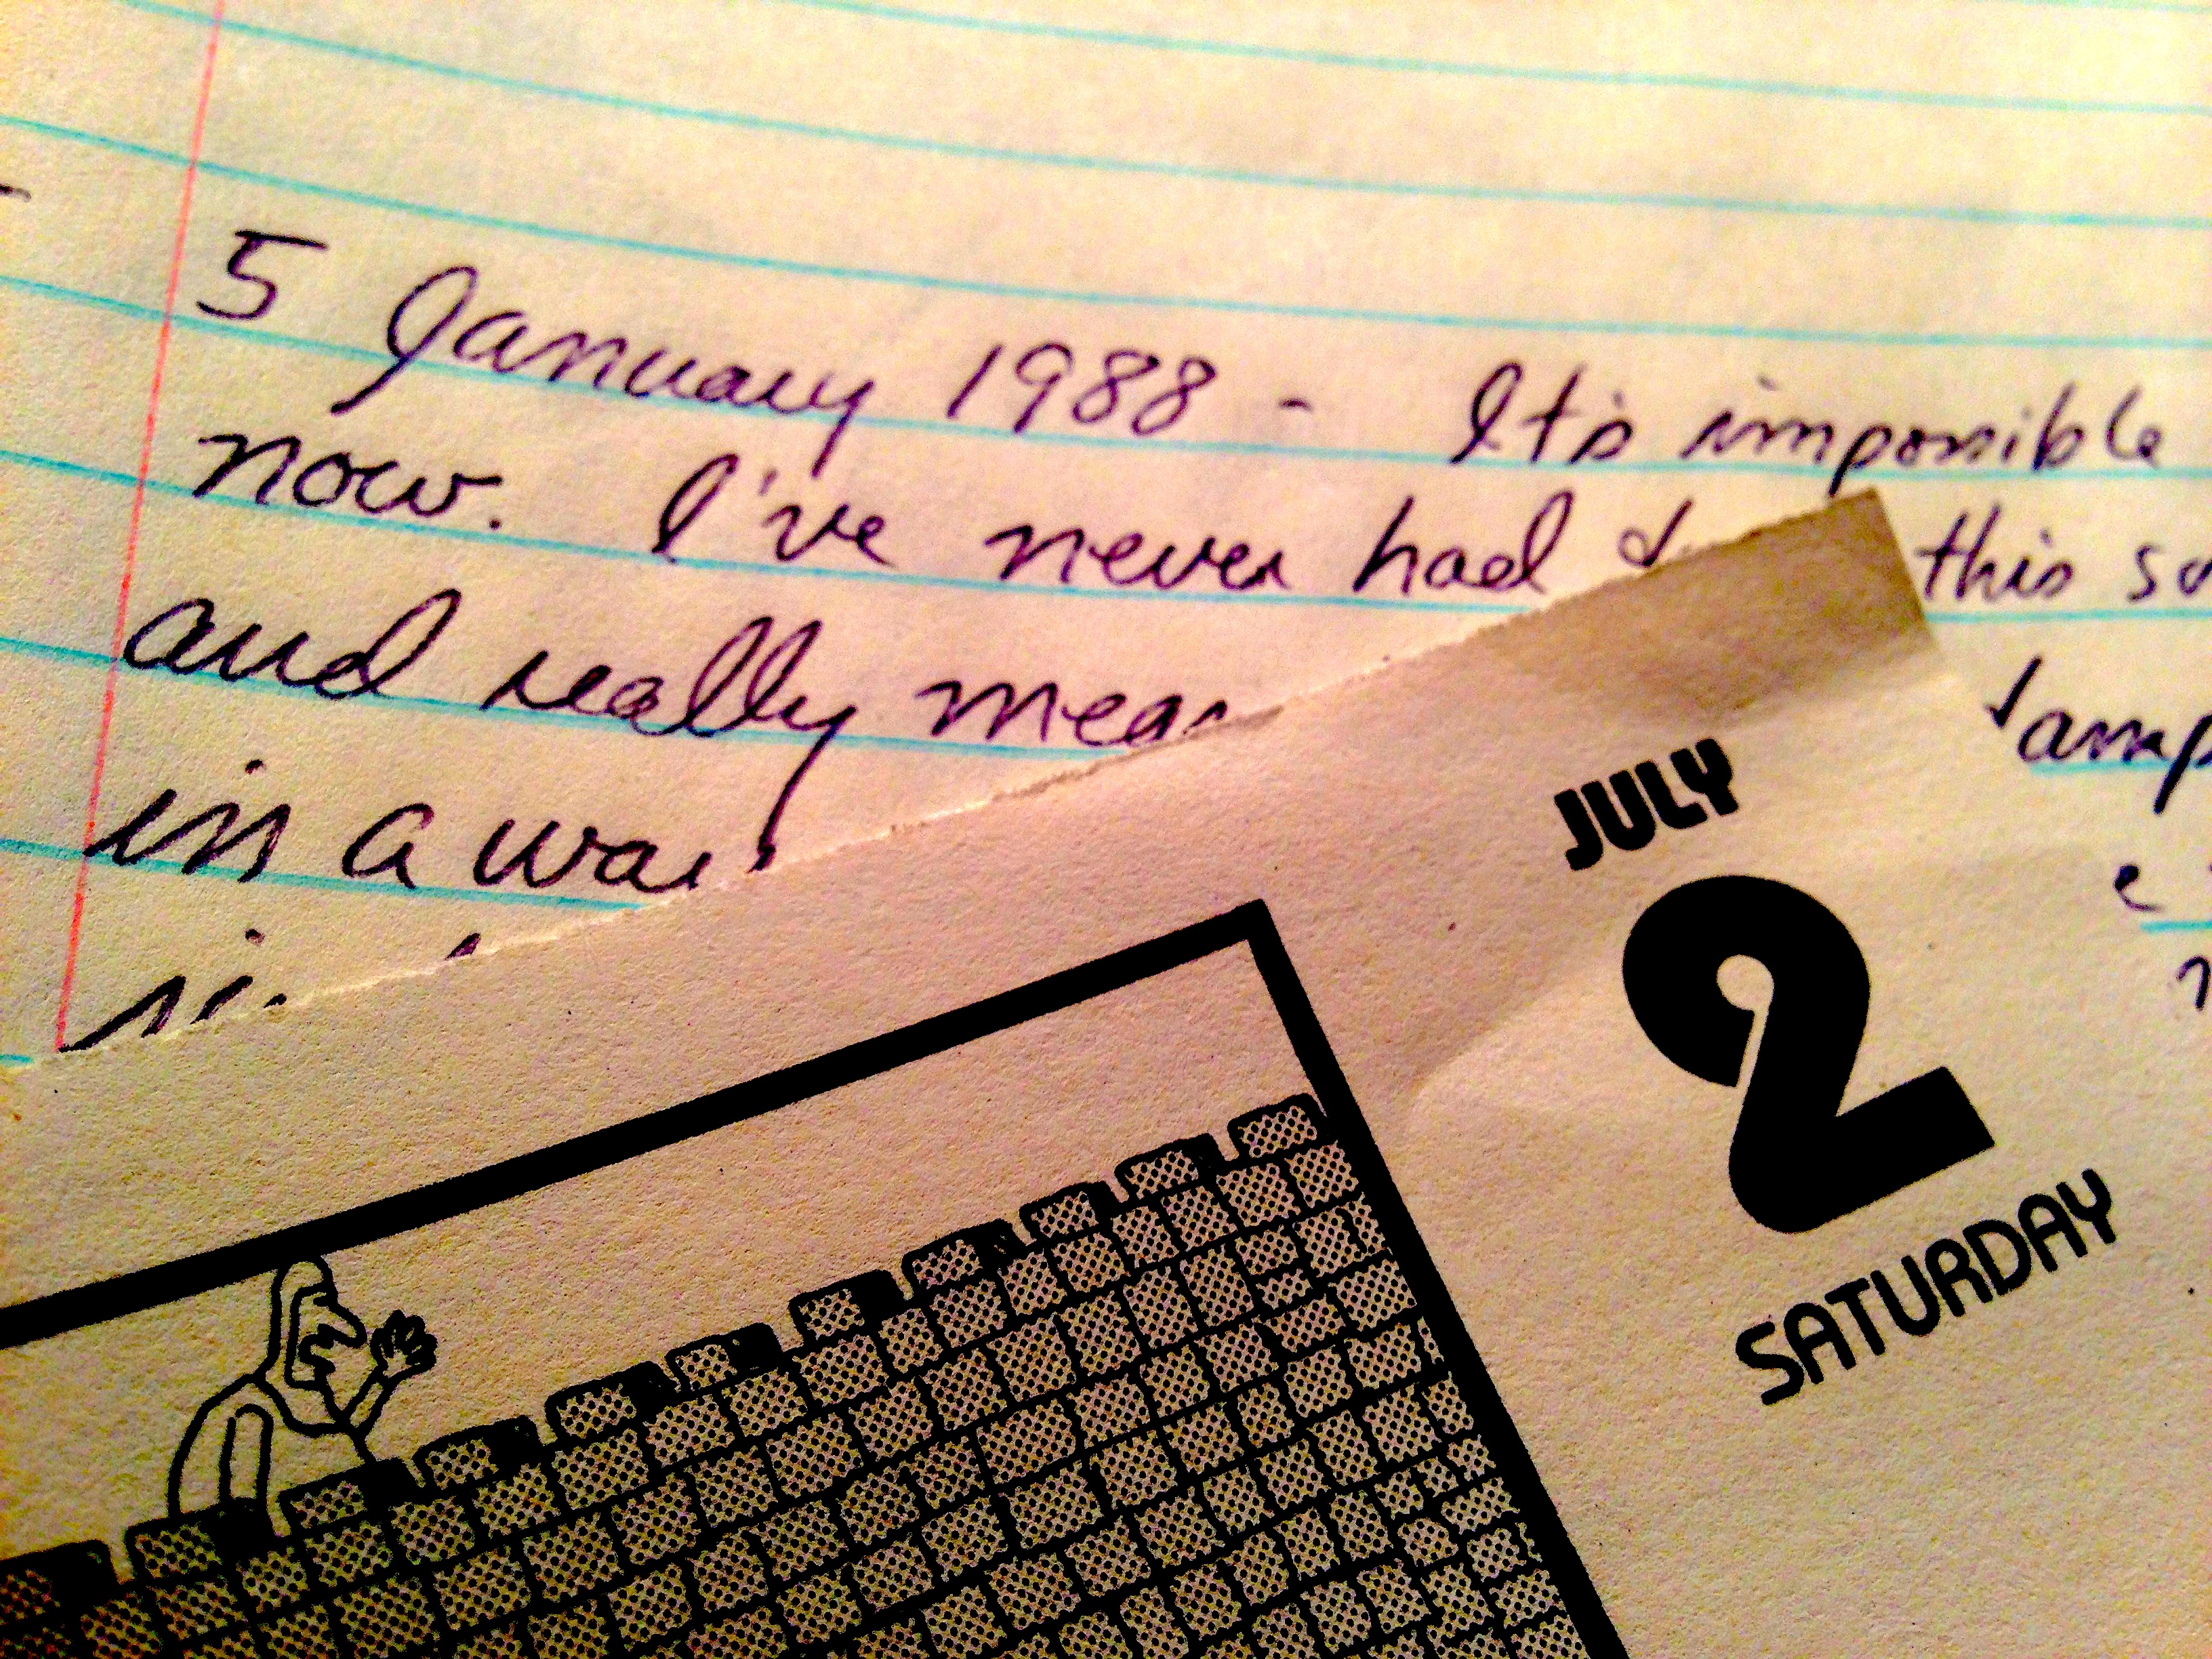 5 January 1988 - It's impossible
now. I've never had this
and really
in a way
JULY
2
SATURDAY